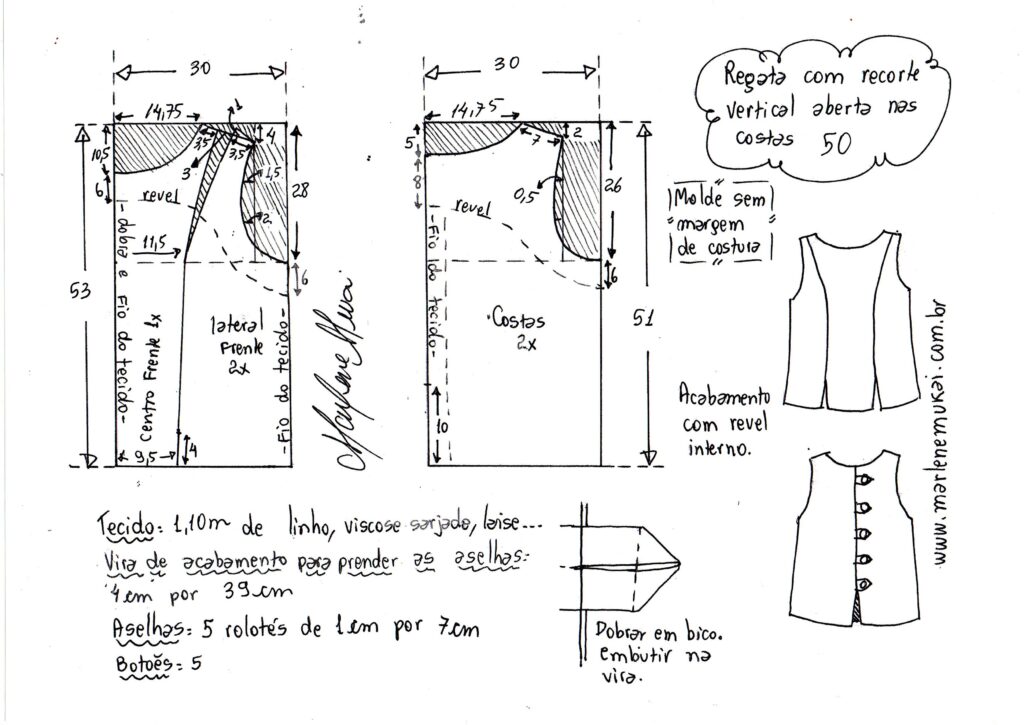 30
14,75
1
10,5
3,5
3,5
4
3
6
revel
1,5
2
28
11,5
6
53
- dobra e Fio do tecido -
Centro Frente 1x
lateral
Frente
2x
- Fio do tecido -
9,5
4
Marlene Mukai
30
14,75
5
7
2
8
0,5
26
revel
6
- Fio do tecido -
Costas
2x
51
10
Regata com recorte
vertical aberta nas
costas 50
Molde sem
margem
de costura
Acabamento
com revel
interno.
www.marlenemukai.com.br
Tecido: 1,10m de linho, viscose sarjada, laise...
Vira de acabamento para prender as aselhas:
4cm por 39cm
Aselhas: 5 rolotés de 1cm por 7cm
Botoẽs: 5
Dobrar em bico.
embutir na
vira.